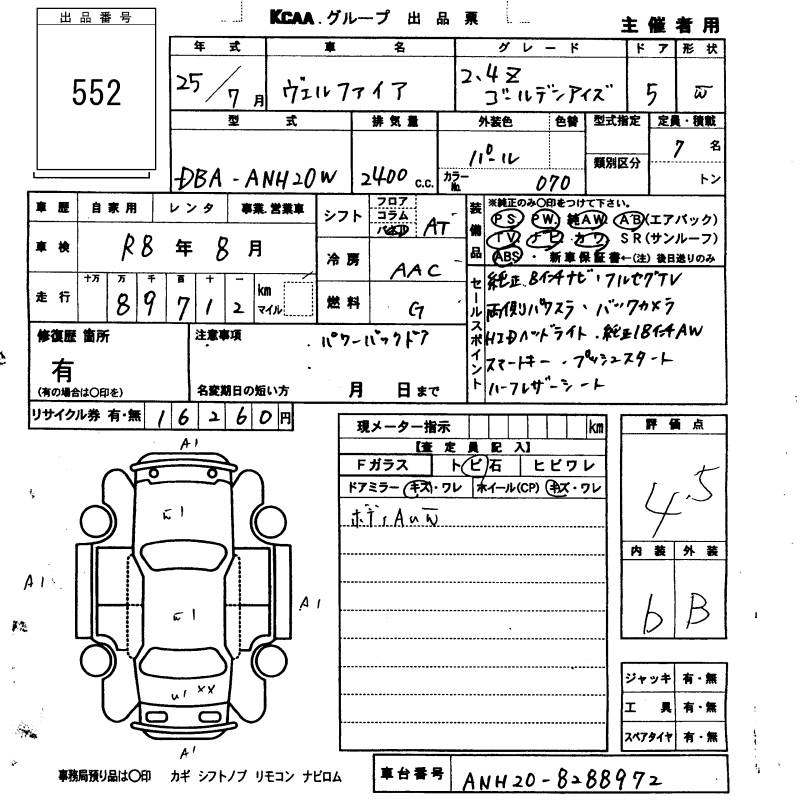 出品番号
552
KCAA.グループ 出品票
主催者用
年式 車名 グレード ドア 形状
25/7月 ヴェルファイア 2.4Z ゴールデンアイズ 5
型式 排気量 外装色 色替 型式指定 定員・積載
DBA-ANH20W 2400 c.c. パール 類別区分 7名
カラーNo. 070 トン
車歴 自家用 レンタ 事業.営業車
車検 R8年8月
走行 十万 万 千 百 十 一
89712 km マイル
シフト フロア コラム パネル AT
冷房 AAC
燃料 G
装備品
※純正のみ〇印をつけて下さい。
PS PW 純AW AB(エアバック)
TV ナビ カワ SR(サンルーフ)
ABS・新車保証書←(注)後日送りのみ
セールスポイント
純正8インチナビ・フルセグTV
両側パワスラ・バックカメラ
HIDヘッドライト・純正18インチAW
スマートキー・プッシュスタート
ハーフレザーシート
修復歴 箇所
有
(有の場合は〇印を)
注意事項 パワーバックドア
名変期日の短い方 月 日まで
リサイクル券 有・無 16260円
現メーター指示 km
【査定員記入】
Fガラス トビ石 ヒビワレ
ドアミラー キズ・ワレ ホイール(CP) キズ・ワレ
評価点
4.5
内装 外装
b B
A1
A1
A1
A1
ジャッキ 有・無
工具 有・無
スペアタイヤ 有・無
事務局預り品は〇印 カギ シフトノブ リモコン ナビロム
車台番号 ANH20-8288972